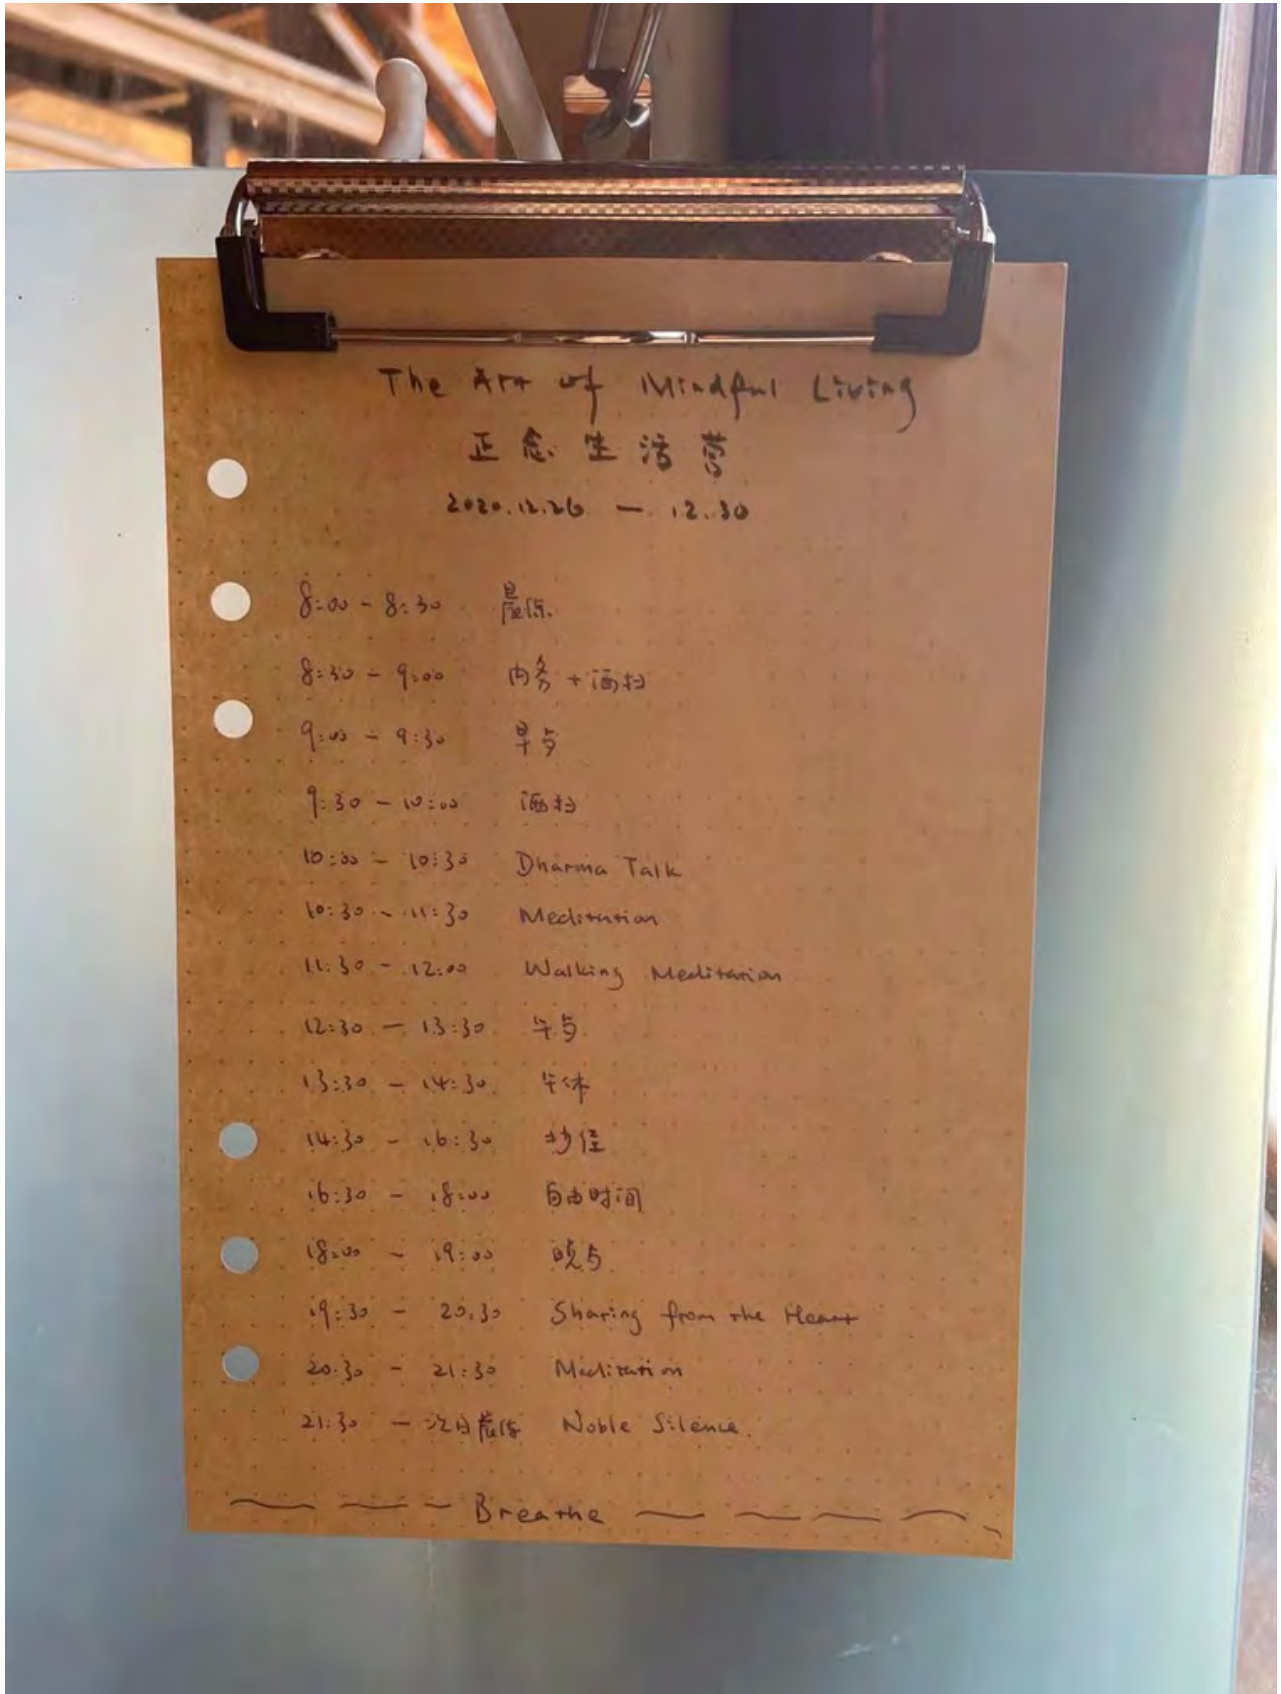 The Art of Mindful Living
正念生活营
2020.12.26 — 12.30
8:00 - 8:30 晨练
8:30 - 9:00 内务 + 洒扫
9:00 - 9:30 早点
9:30 - 10:00 洒扫
10:00 - 10:30 Dharma Talk
10:30 - 11:30 Meditation
11:30 - 12:00 Walking Meditation
12:30 - 13:30
13:30 - 14:30 午休
14:30 - 16:30 抄经
16:30 - 18:00 自由时间
18:00 - 19:00
19:30 - 20:30 Sharing from the Heart
20:30 - 21:30 Meditation
21:30 - 次日 Noble Silence.
Breathe